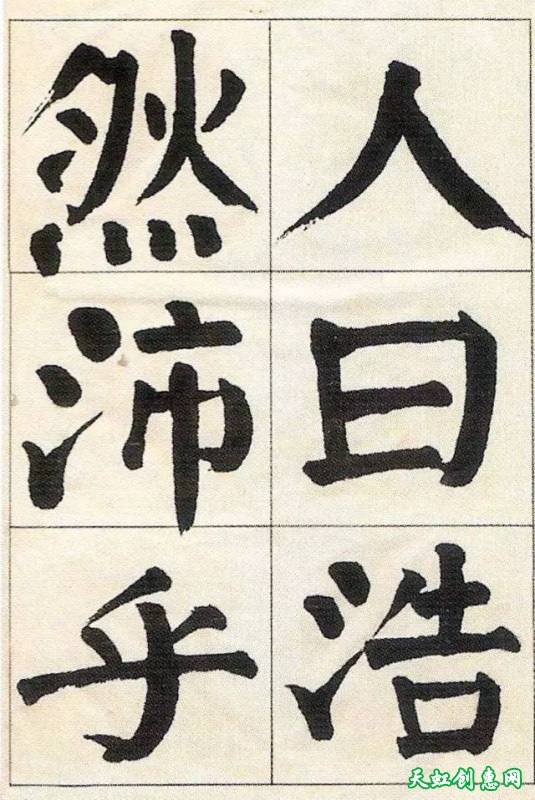 人曰浩
然沛乎
天虹创惠网